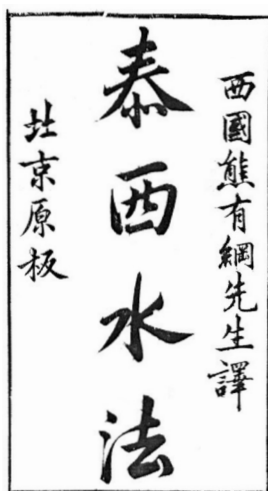 西國熊有綱先生譯
泰西水法
北京原板